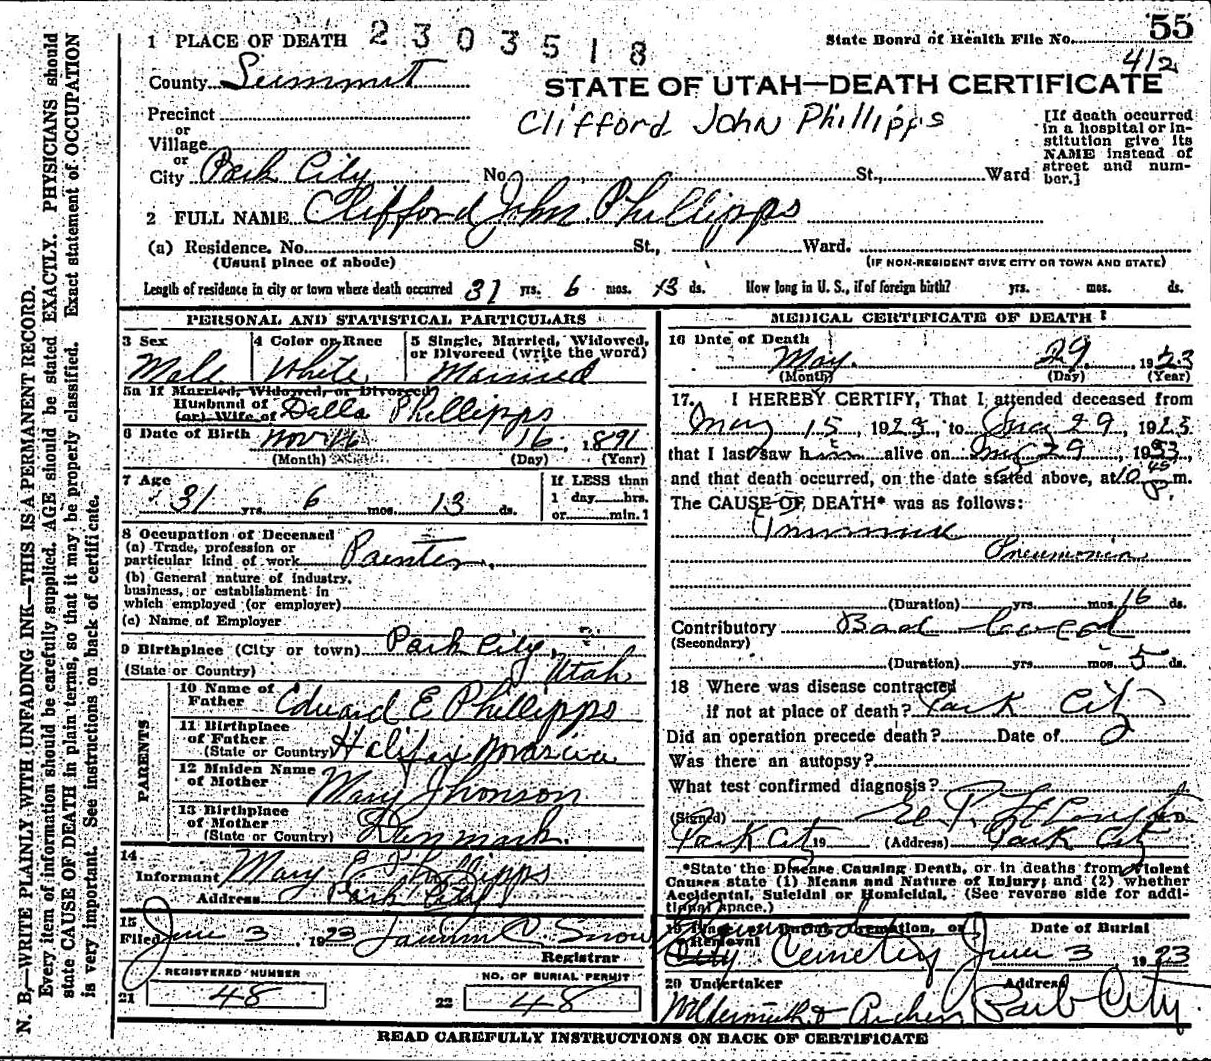 55
1 PLACE OF DEATH 2303518
State Board of Health File No. 412
County Summit
STATE OF UTAH—DEATH CERTIFICATE
Precinct
Clifford John Phillipps
or
Village
or
City Park City No. St., Ward
[If death occurred
in a hospital or in-
stitution give its
NAME instead of
street and num-
ber.]
2 FULL NAME Clifford John Phillipps
(a) Residence. No. St., Ward.
(Usual place of abode)
(IF NON-RESIDENT GIVE CITY OR TOWN AND STATE)
Length of residence in city or town where death occurred 31 yrs. 6 mos. 13 ds. How long in U. S., if of foreign birth? yrs. mos. ds.
PERSONAL AND STATISTICAL PARTICULARS
3 Sex
Male
4 Color or Race
White
5 Single, Married, Widowed,
or Divorced (write the word)
Married
5a If Married, Widowed, or Divorced
Husband of
(or) Wife of Della Phillipps
6 Date of Birth Nov 16 16, 1891
(Month) (Day) (Year)
7 Age
31 yrs. 6 mos. 13 ds.
If LESS than
1 day hrs.
or min.?
8 Occupation of Deceased
(a) Trade, profession or
particular kind of work Painter.
(b) General nature of industry,
business, or establishment in
which employed (or employer)
(c) Name of Employer
9 Birthplace (City or town) Park City,
(State or Country) Utah
PARENTS
10 Name of
Father Edward E Phillipps
11 Birthplace
of Father
(State or Country) Halifax
12 Maiden Name
of Mother Mary Jhonson
13 Birthplace
of Mother
(State or Country) Denmark.
14
Informant Mary E Phillipps
Address Park City
15
Filed June 3, 1923 C Snow
Registrar
REGISTERED NUMBER
21 48
NO. OF BURIAL PERMIT
22 48
MEDICAL CERTIFICATE OF DEATH
16 Date of Death
May 29 1923
(Month) (Day) (Year)
17. I HEREBY CERTIFY, That I attended deceased from
May 15, 1923, to 29, 1923
that I last saw him alive on 29, 19
and that death occurred, on the date stated above, at 10 45 P. m.
The CAUSE OF DEATH* was as follows:
Pneumonia
(Duration) yrs. mos. 16 ds.
Contributory Bad
(Secondary)
(Duration) yrs. mos. 5 ds.
18 Where was disease contracted
if not at place of death? Park City
Did an operation precede death? Date of
Was there an autopsy?
What test confirmed diagnosis?
(Signed) M. D.
Park City 19 (Address) Park City
*State the Disease Causing Death, or in deaths from Violent
Causes state (1) Means and Nature of Injury; and (2) whether
Accidental, Suicidal or Homicidal. (See reverse side for addi-
tional space.)
19 Place of Burial, Cremation, or
Removal
City Cemetery
Date of Burial
June 3 1923
20 Undertaker
Address
Archer Park City
READ CAREFULLY INSTRUCTIONS ON BACK OF CERTIFICATE
N. B.—WRITE PLAINLY WITH UNFADING INK—THIS IS A PERMANENT RECORD.
Every item of information should be carefully supplied. AGE should be stated EXACTLY. PHYSICIANS should
state CAUSE OF DEATH in plain terms, so that it may be properly classified. Exact statement of OCCUPATION
is very important. See instructions on back of certificate.